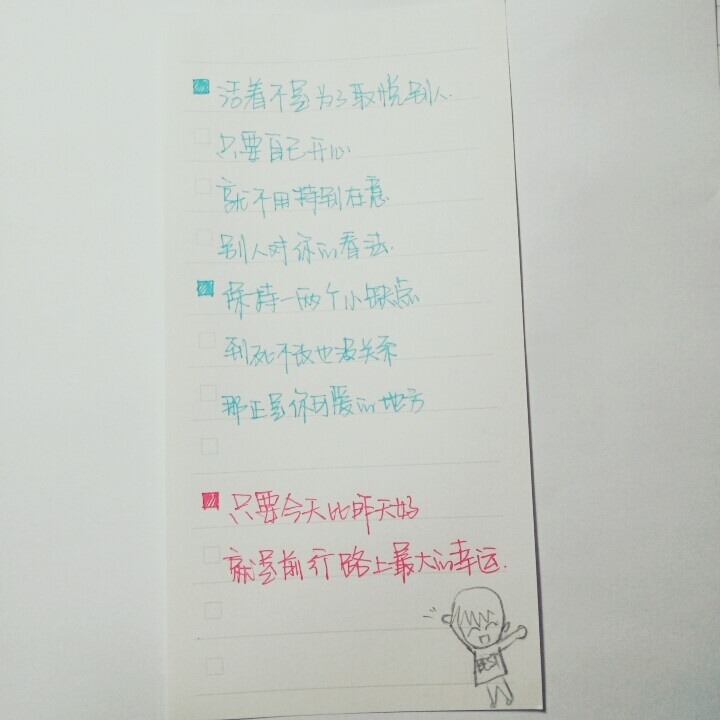 活着不是为了取悦别人.
只要自己开心
就不用特别在意
别人对你的看法.
保持一两个小缺点
到死不改也没关系
那正是你可爱的地方
只要今天比昨天好
就是前行路上最大的幸运.